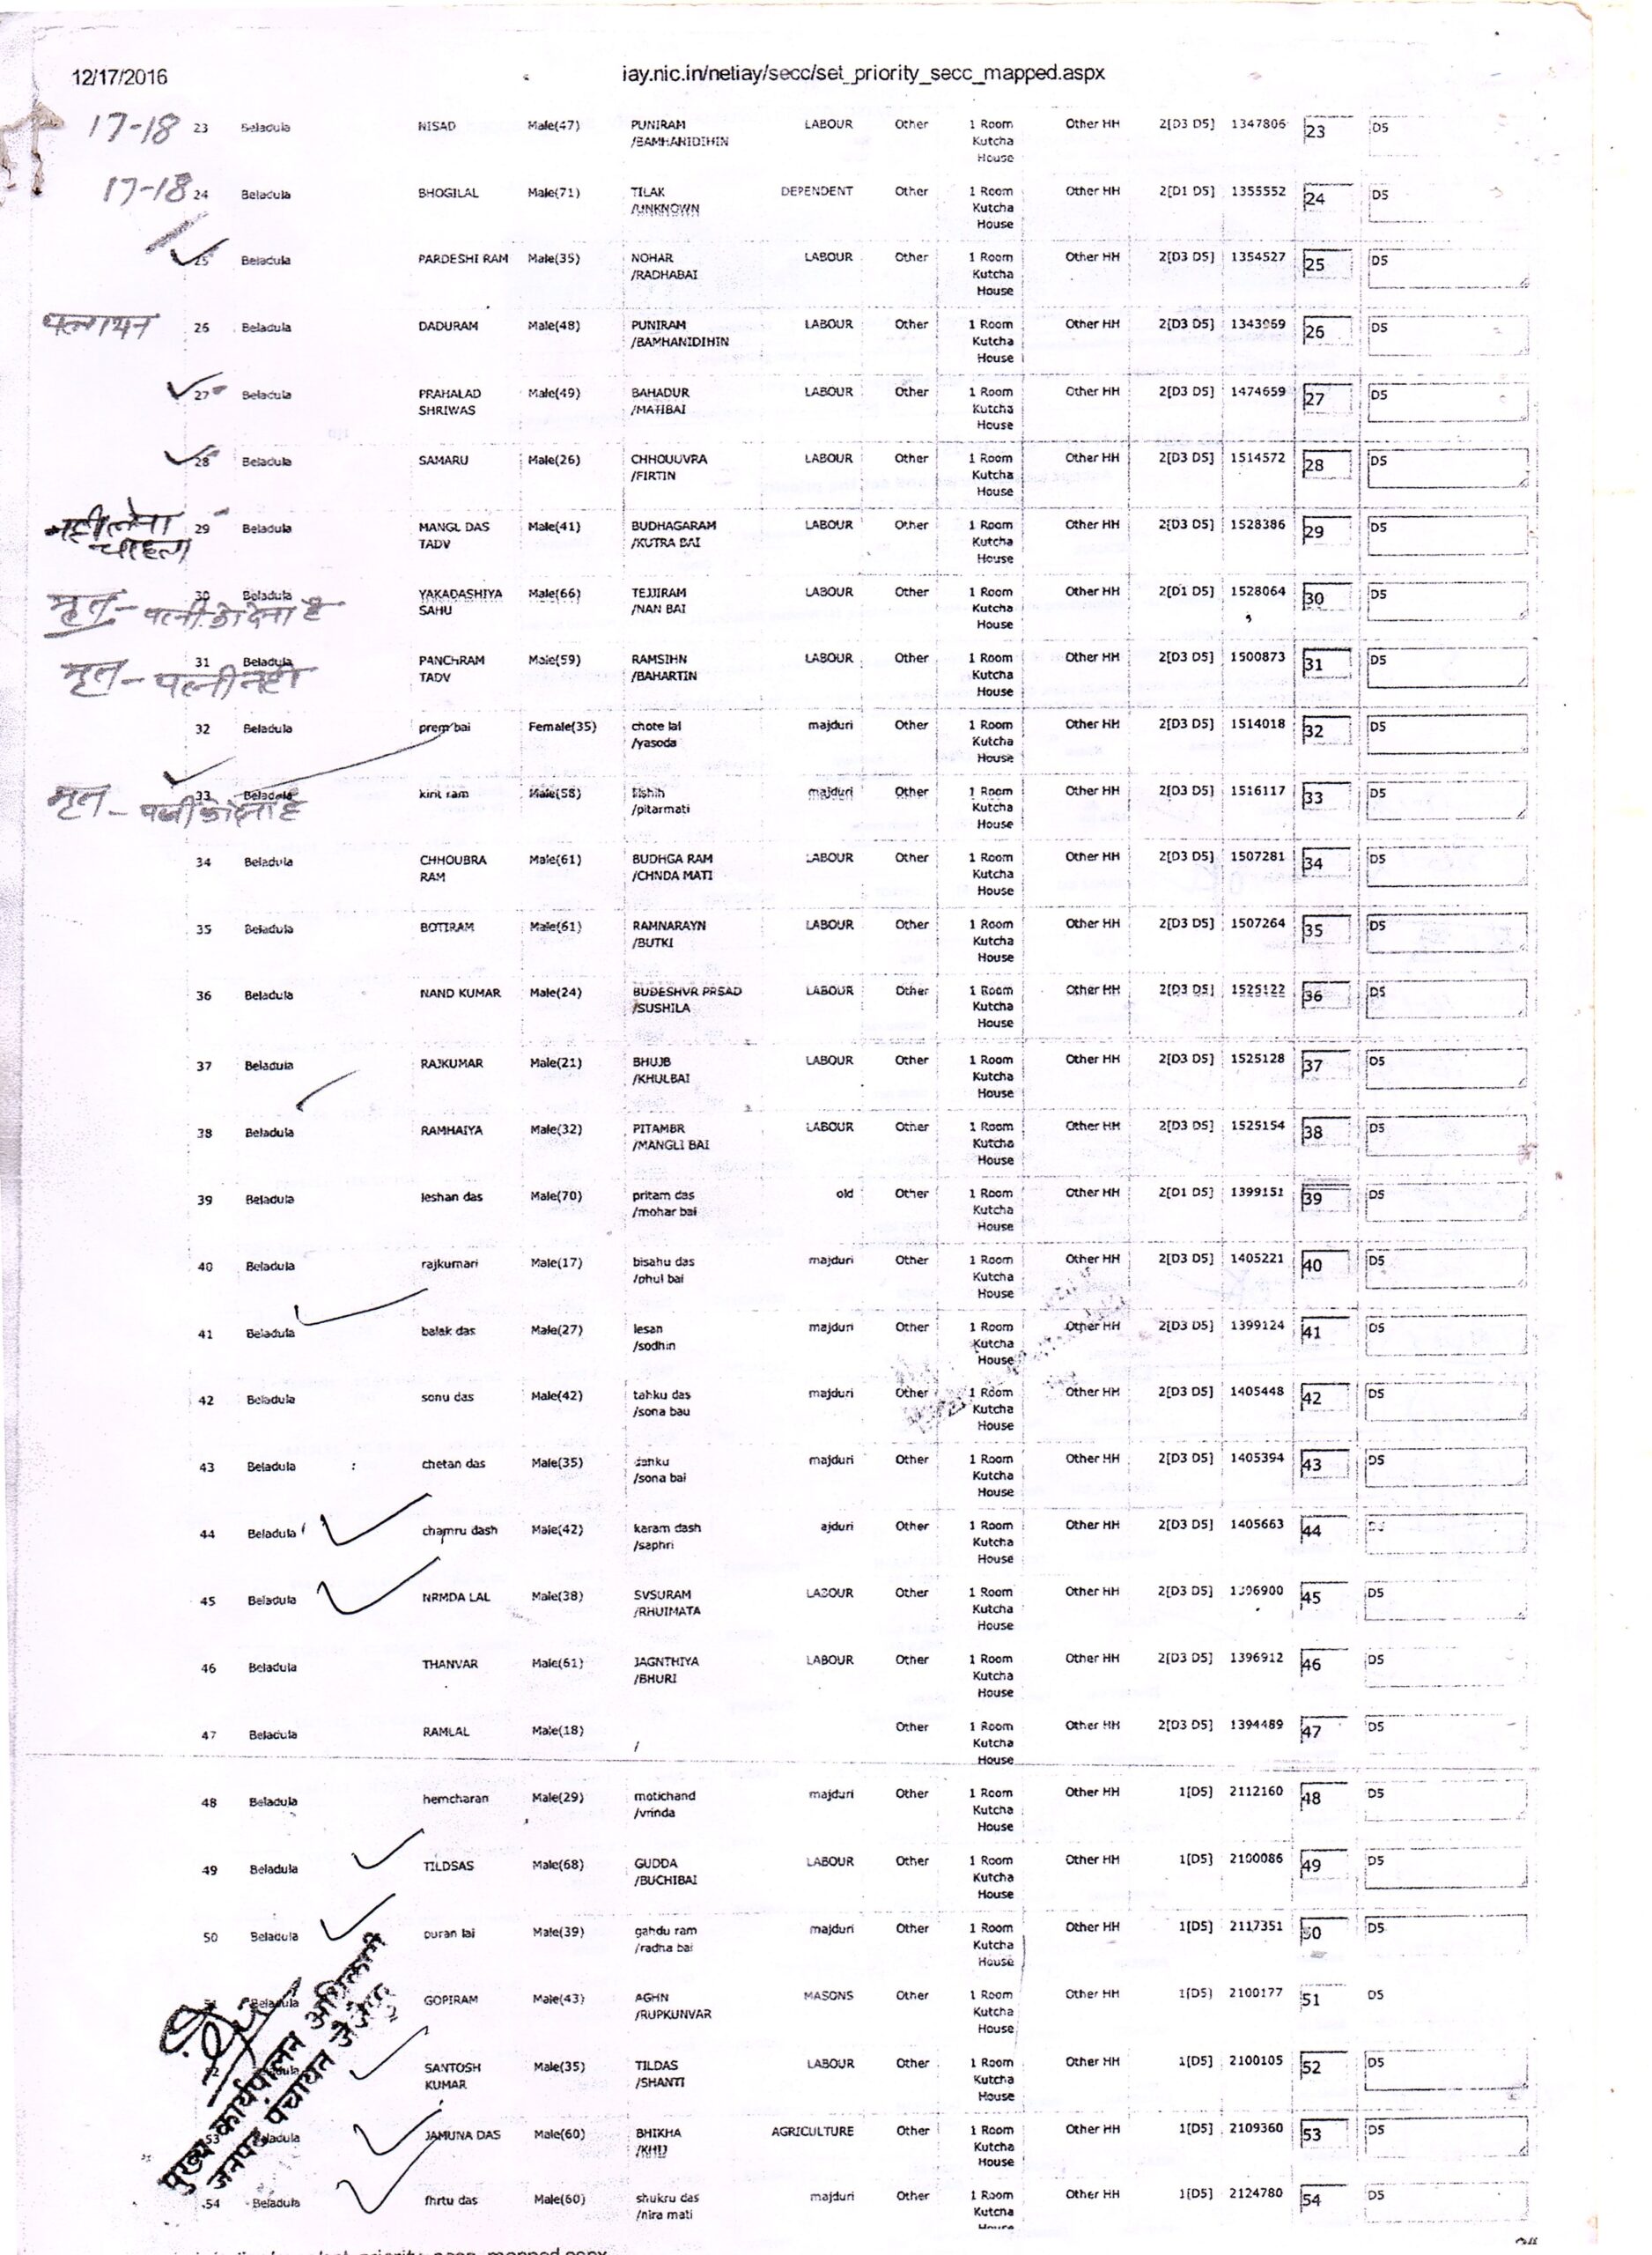 12/17/2016 iay.nic.in/netiay/secc/set_priority_secc_mapped.aspx
17-18 23 Beladula NISAD Male(47) PUNIRAM LABOUR Other 1 Room Other HH 2[D3 D5] 1347806 23 D5
/BAMHANIDIHIN Kutcha
House
17-18 24 Beladula BHOGILAL Male(71) TILAK DEPENDENT Other 1 Room Other HH 2[D1 D5] 1355552 24 D5
/UNKNOWN Kutcha
House
25 Beladula PARDESHI RAM Male(35) NOHAR LABOUR Other 1 Room Other HH 2[D3 D5] 1354527 25 D5
/RADHABAI Kutcha
House
26 Beladula DADURAM Male(48) PUNIRAM LABOUR Other 1 Room Other HH 2[D3 D5] 1343969 26 D5
/BAMHANIDIHIN Kutcha
House
27 Beladula PRAHALAD Male(49) BAHADUR LABOUR Other 1 Room Other HH 2[D3 D5] 1474659 27 D5
SHRIWAS /MATIBAI Kutcha
House
28 Beladula SAMARU Male(26) CHHOUUVRA LABOUR Other 1 Room Other HH 2[D3 D5] 1514572 28 D5
/FIRTIN Kutcha
House
नही लेना 29 Beladula MANGL DAS Male(41) BUDHAGARAM LABOUR Other 1 Room Other HH 2[D3 D5] 1528386 29 D5
चाहता TADV /KUTRA BAI Kutcha
House
30 Beladula YAKADASHIYA Male(66) TEJJIRAM LABOUR Other 1 Room Other HH 2[D1 D5] 1528064 30 D5
मृत - पत्नी को देना है SAHU /NAN BAI Kutcha
House
31 Beladula PANCHRAM Male(59) RAMSIHN LABOUR Other 1 Room Other HH 2[D3 D5] 1500873 31 D5
मृत - पत्नी नही TADV /BAHARTIN Kutcha
House
32 Beladula prem bai Female(35) chote lal majduri Other 1 Room Other HH 2[D3 D5] 1514018 32 D5
/yasoda Kutcha
House
33 Beladula kirit ram Male(58) majduri Other 1 Room Other HH 2[D3 D5] 1516117 33 D5
मृत - पत्नी को देना है /pitarmati Kutcha
House
34 Beladula CHHOUBRA Male(61) BUDHGA RAM LABOUR Other 1 Room Other HH 2[D3 D5] 1507281 34 D5
RAM /CHNDA MATI Kutcha
House
35 Beladula BOTIRAM Male(61) RAMNARAYN LABOUR Other 1 Room Other HH 2[D3 D5] 1507264 35 D5
/BUTKI Kutcha
House
36 Beladula NAND KUMAR Male(24) BUDESHVR PRSAD LABOUR Other 1 Room Other HH 2[D3 D5] 1525122 36 D5
/SUSHILA Kutcha
House
37 Beladula RAJKUMAR Male(21) BHUJB LABOUR Other 1 Room Other HH 2[D3 D5] 1525128 37 D5
/KHULBAI Kutcha
House
38 Beladula RAMHAIYA Male(32) PITAMBR LABOUR Other 1 Room Other HH 2[D3 D5] 1525154 38 D5
/MANGLI BAI Kutcha
House
39 Beladula leshan das Male(70) pritam das old Other 1 Room Other HH 2[D1 D5] 1399151 39 D5
/mohar bai Kutcha
House
40 Beladula rajkumari Male(17) bisahu das majduri Other 1 Room Other HH 2[D3 D5] 1405221 40 D5
/phul bai Kutcha
House
41 Beladula balak das Male(27) lesan majduri Other 1 Room Other HH 2[D3 D5] 1399124 41 D5
/sodhin Kutcha
House
42 Beladula sonu das Male(42) tahku das majduri Other 1 Room Other HH 2[D3 D5] 1405448 42 D5
/sona bau Kutcha
House
43 Beladula chetan das Male(35) majduri Other 1 Room Other HH 2[D3 D5] 1405394 43 D5
/sona bai Kutcha
House
44 Beladula chamru dash Male(42) karam dash ajduri Other 1 Room Other HH 2[D3 D5] 1405663 44
/saphri Kutcha
House
45 Beladula NRMDA LAL Male(38) SVSURAM LABOUR Other 1 Room Other HH 2[D3 D5] 45 D5
/RHUIMATA Kutcha
House
46 Beladula THANVAR Male(61) JAGNTHIYA LABOUR Other 1 Room Other HH 2[D3 D5] 1396912 46 D5
/BHURI Kutcha
House
47 Beladula RAMLAL Male(18) Other 1 Room Other HH 2[D3 D5] 1394489 47 D5
/ Kutcha
House
48 Beladula hemcharan Male(29) motichand majduri Other 1 Room Other HH 1[D5] 2112160 48 D5
/vrinda Kutcha
House
49 Beladula TILDSAS Male(68) GUDDA LABOUR Other 1 Room Other HH 1[D5] 2100086 49 D5
/BUCHIBAI Kutcha
House
50 Beladula puran lal Male(39) gahdu ram majduri Other 1 Room Other HH 1[D5] 2117351 50 D5
/radha bai Kutcha
House
51 Beladula GOPIRAM Male(43) AGHN MASONS Other 1 Room Other HH 1[D5] 2100177 51 D5
/RUPKUNVAR Kutcha
House
SANTOSH Male(35) TILDAS LABOUR Other 1 Room Other HH 1[D5] 2100105 52 D5
KUMAR /SHANTI Kutcha
House
53 Beladula JAMUNA DAS Male(60) BHIKHA AGRICULTURE Other 1 Room Other HH 1[D5] 2109360 53 D5
Kutcha
House
54 Beladula fhrtu das Male(60) shukru das majduri Other 1 Room Other HH 1[D5] 2124780 54 D5
/nira mati Kutcha
House
मुख्य कार्यपालन अधिकारी
जनपद पंचायत